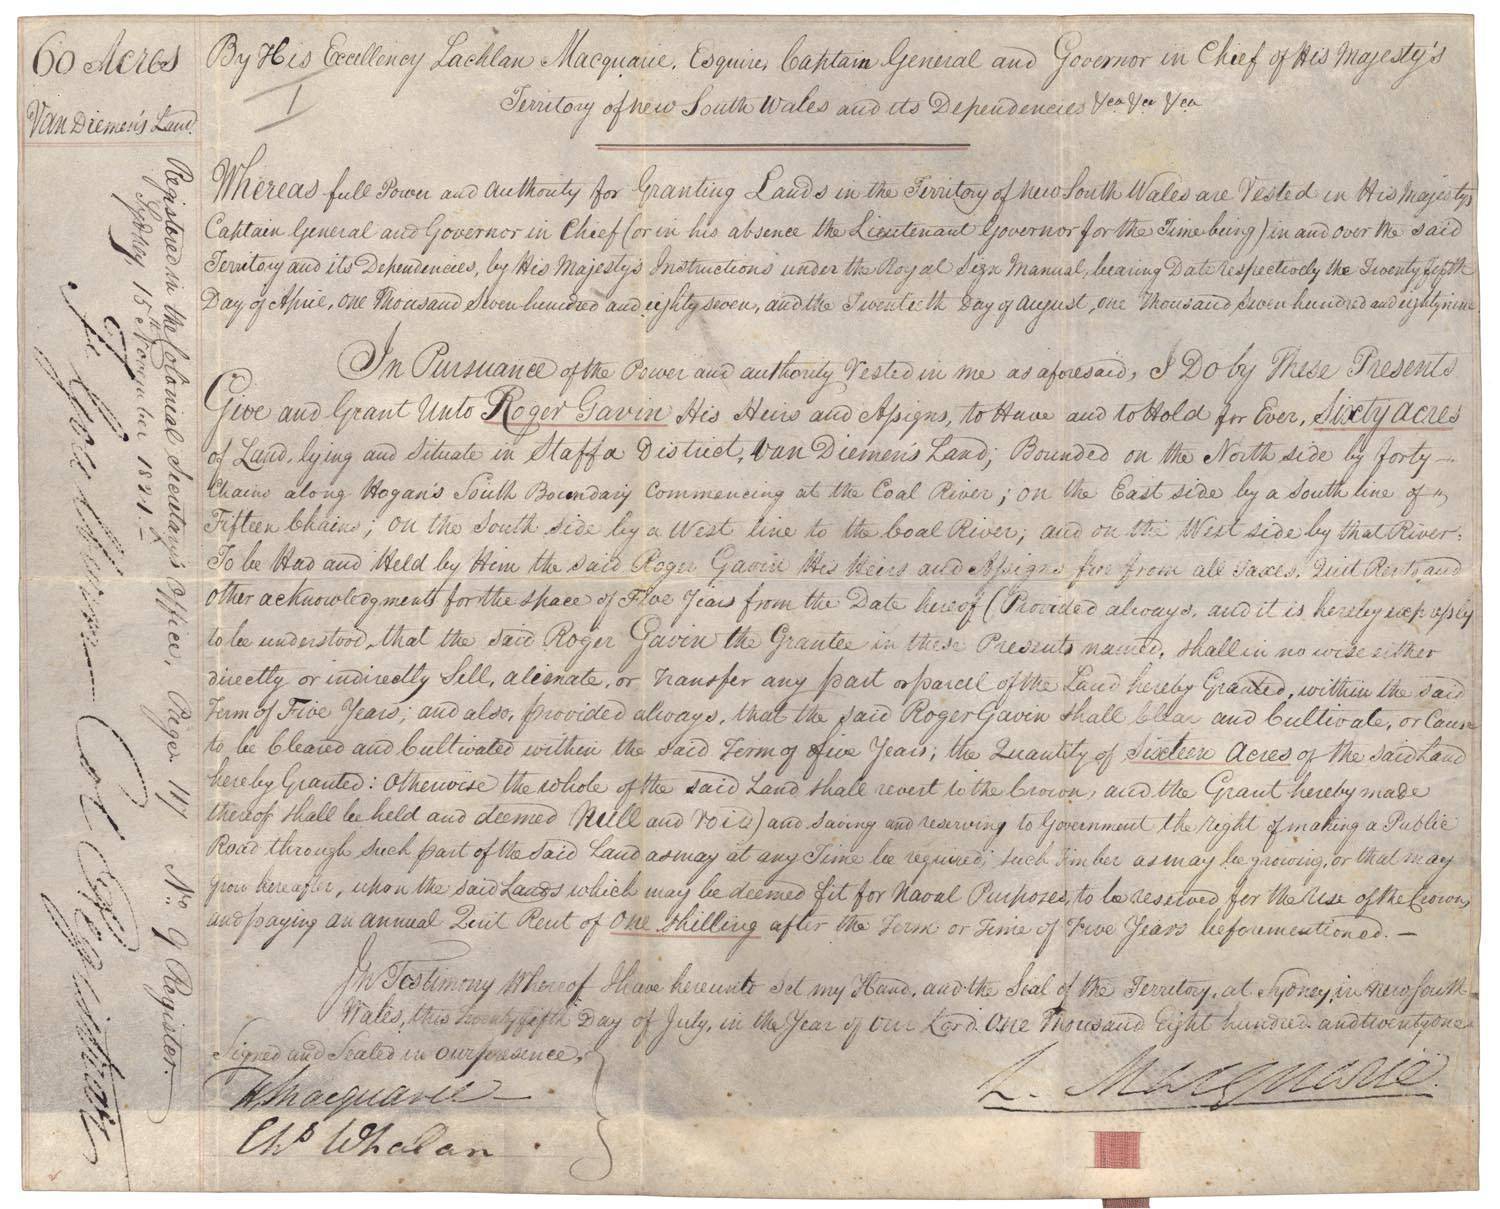 60 Acres
Van Diemen's Land.
By His Excellency Lachlan Macquarie, Esquire, Captain General and Governor in Chief of His Majesty's
Territory of new South Wales and its Dependencies &ca &ca &ca
Whereas full Power and authority for Granting Lands in the Territory of new South Wales are Vested in His Majesty's
Captain General and Governor in Chief (or in his absence the Lieutenant Governor for the Time being) in and over the said
Territory and its Dependencies, by His Majesty's Instructions under the Royal Sign Manual, bearing Date respectively the Twenty fifth
Day of April, one Thousand Seven hundred and eighty seven, and the Twentieth Day of august, one Thousand Seven hundred and eighty nine
In Pursuance of the Power and authority Vested in me as aforesaid, I Do by These Presents
Give and Grant Unto Roger Gavin His Heirs and Assigns, to Have and to Hold for Ever, Sixty acres
of Land, lying and Situate in Staffa District, Van Diemen's Land; Bounded on the North side by forty
Chains along Hogan's South Boundary Commencing at the Coal River; on the East side by a South line of
Fifteen Chains; on the South side by a West line to the Coal River; and on the West side by that River:
To be Had and Held by Him the said Roger Gavin His Heirs and Assigns free from all Taxes, Quit Rents, and
other acknowledgments for the space of Five Years from the Date hereof (Provided always, and it is hereby expressly
to be understood, that the said Roger Gavin the Grantee in these Presents named, shall in no wise either
directly or indirectly Sell, alienate, or Transfer any part or parcel of the Land hereby Granted, within the said
Term of Five Years; and also, provided always, that the said Roger Gavin shall Clear and Cultivate, or Cause
to be Cleared and Cultivated within the said Term of five Years, the Quantity of Sixteen Acres of the said Land
hereby Granted: otherwise the whole of the said Land shall revert to the Crown, and the Grant hereby made
thereof shall be held and deemed Null and Void) and saving and reserving to Government the right of making a Public
Road through such part of the said Land as may at any Time be required; such Timber as may be growing, or that may
grow hereafter, upon the said Lands which may be deemed fit for Naval Purposes, to be reserved for the Use of the Crown,
and paying an annual Quit Rent of One Shilling after the Term or Time of Five Years beforementioned. —
In Testimony Whereof I have hereunto Set my Hand, and the Seal of the Territory, at Sydney, in New South
Wales, this twenty fifth Day of July, in the Year of Our Lord One Thousand Eight hundred and twenty one
Signed and Sealed in our presence,
H Macquarie
Chs Whalan
L. Macquarie.
Registered in the Colonial Secretary's Office, Page 117 No. 9 Register.
Sydney, 15th November 1821.